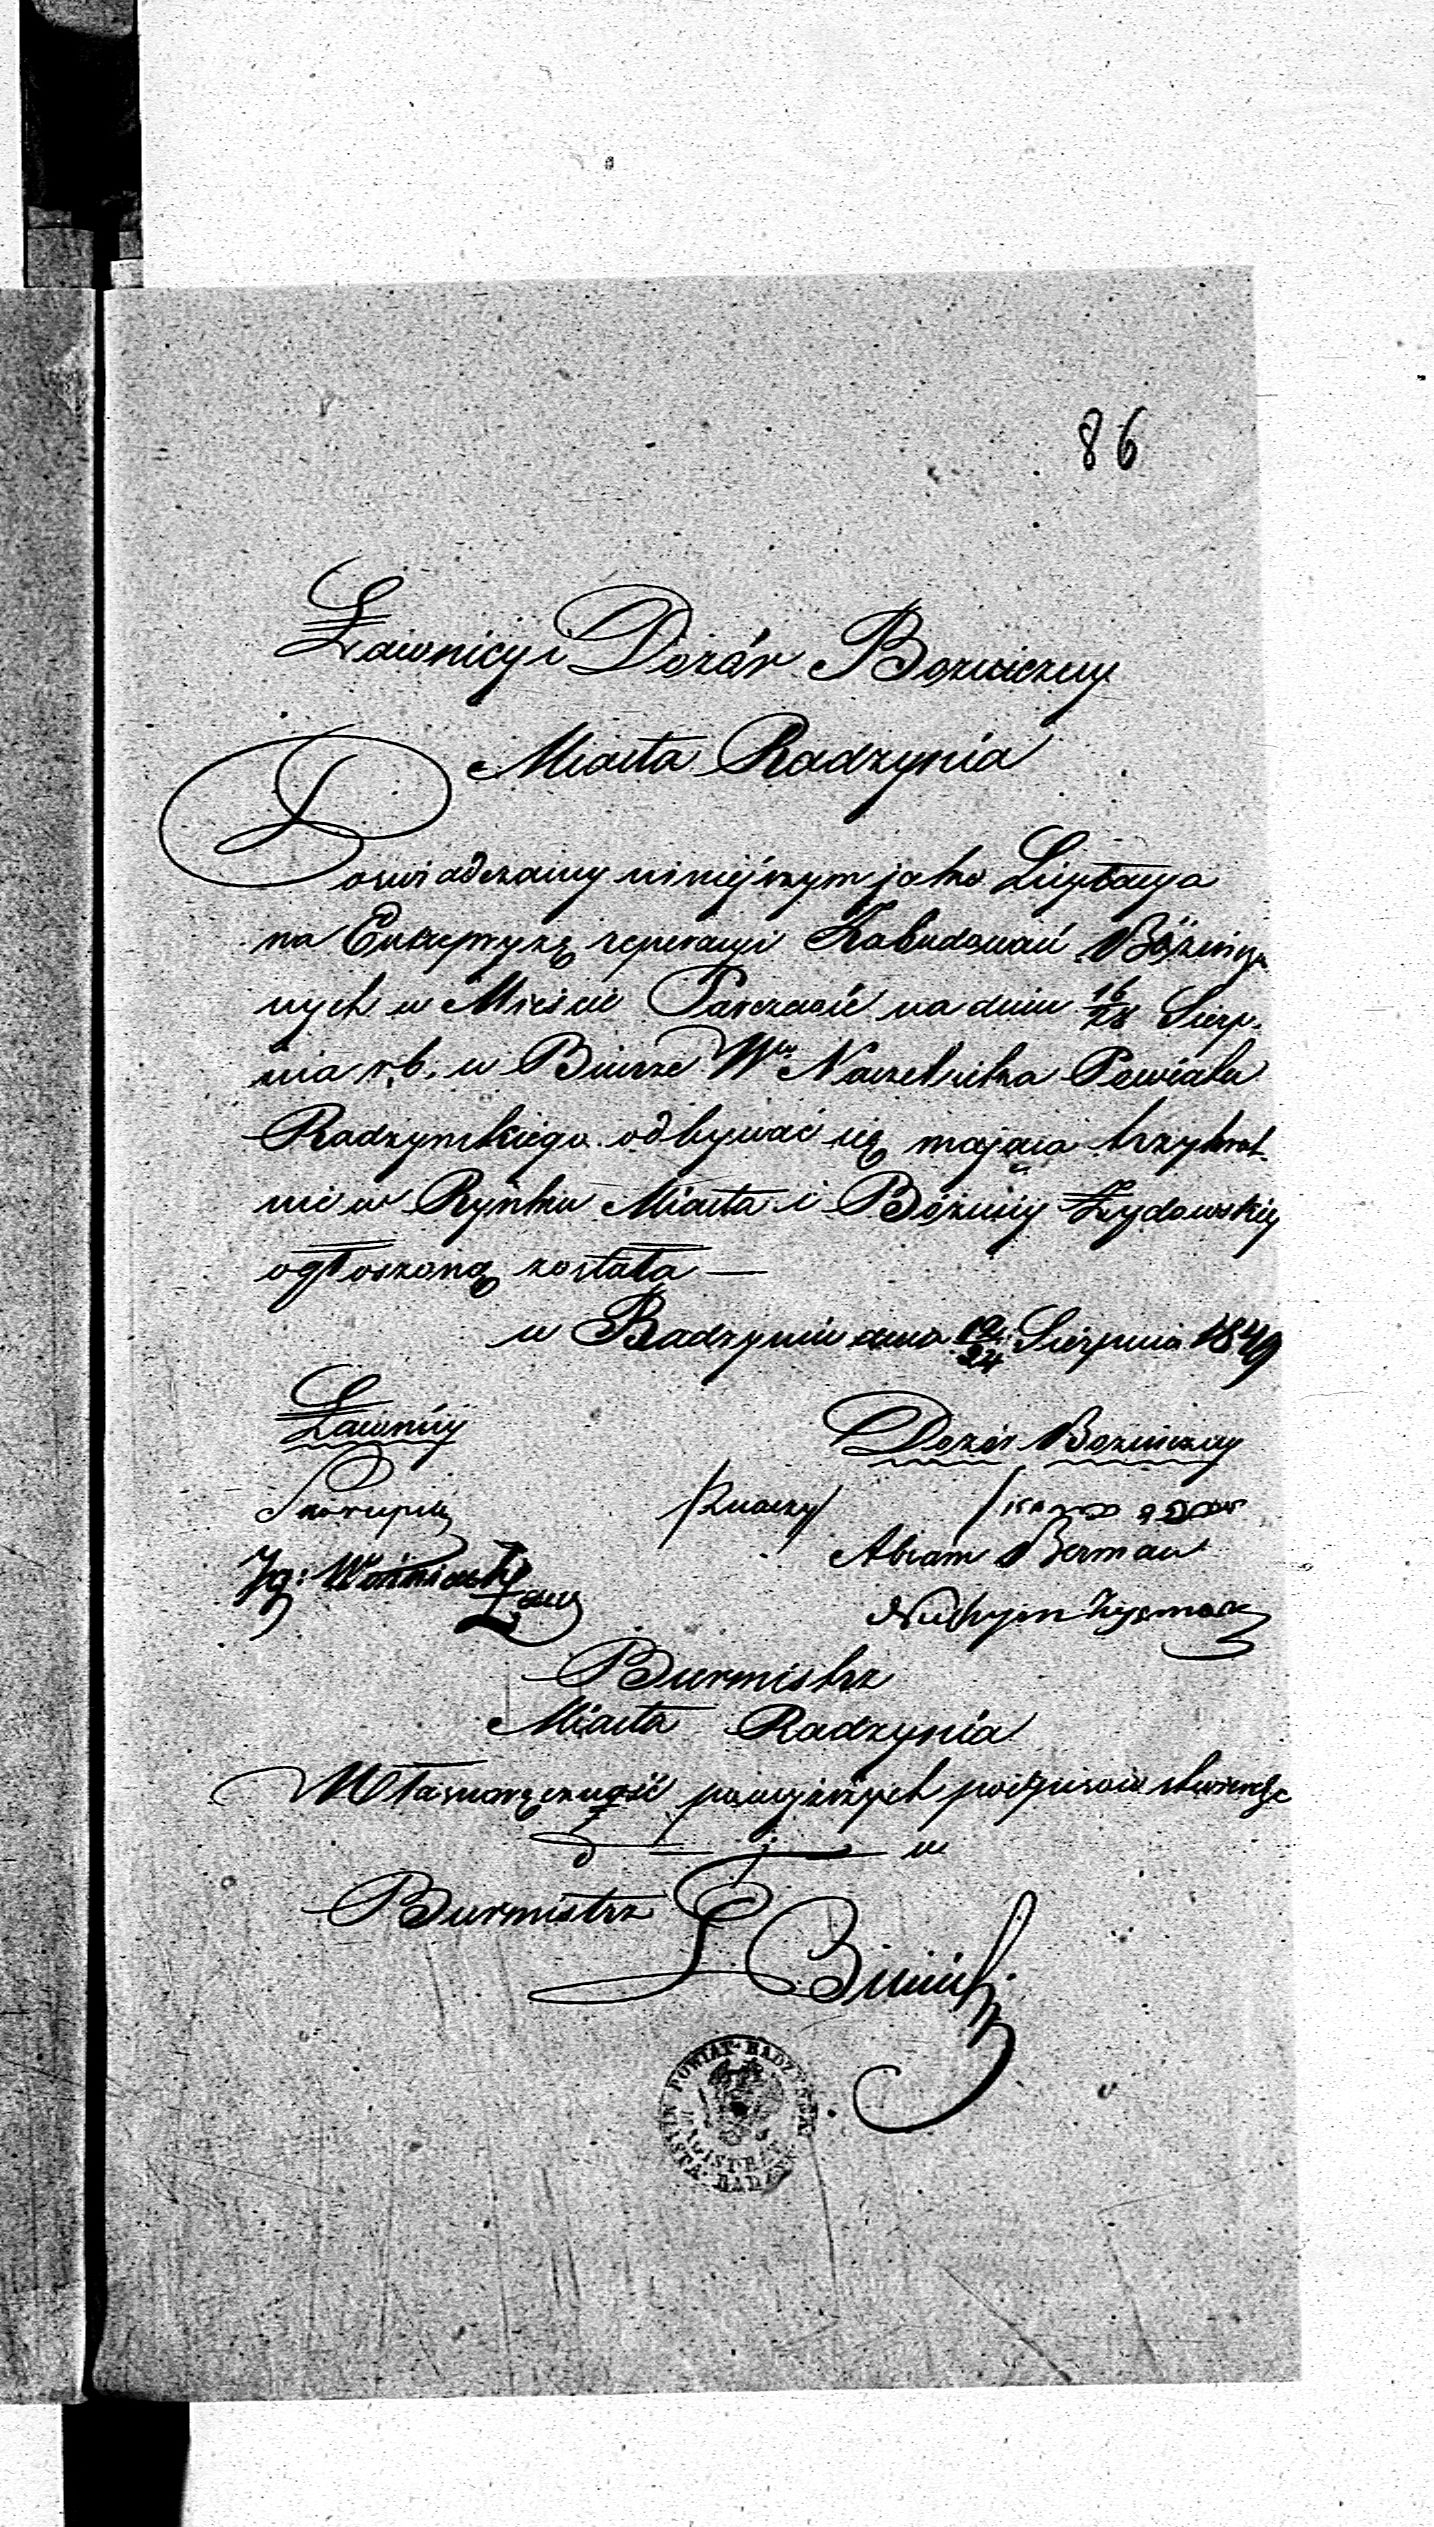 86
Ławnicy i Dozór Bozniczny
Miasta Radzynia
Poswiadczamy niniejszym jako Licytacya
na Entrepryzę reperacyi Zabudowań Bóżnicz
nych w Mieście Parczewie na dniu 16/28 Sierp-
nia r. b. w Biurze Wgo Naczelnika Powiatu
Radzynskiego odbywać się mająca trzykrot-
nie w Rynku Miasta i Bóżnicy Żydowskiej
ogłoszoną została —
w Radzyniu dnia 12/24 Sierpnia 1849
Ławnicy
Dozór Bozniczny
Skorupski
Abram Berman
Jg: Woźniacki Ław
Nuchym Zysman
Burmistrz
Miasta Radzynia
Własnoręczność powyższych podpisow stwierdza
Burmistrz
POWIAT RADZYNSKI
MAGISTRAT
MIASTA RADZYN